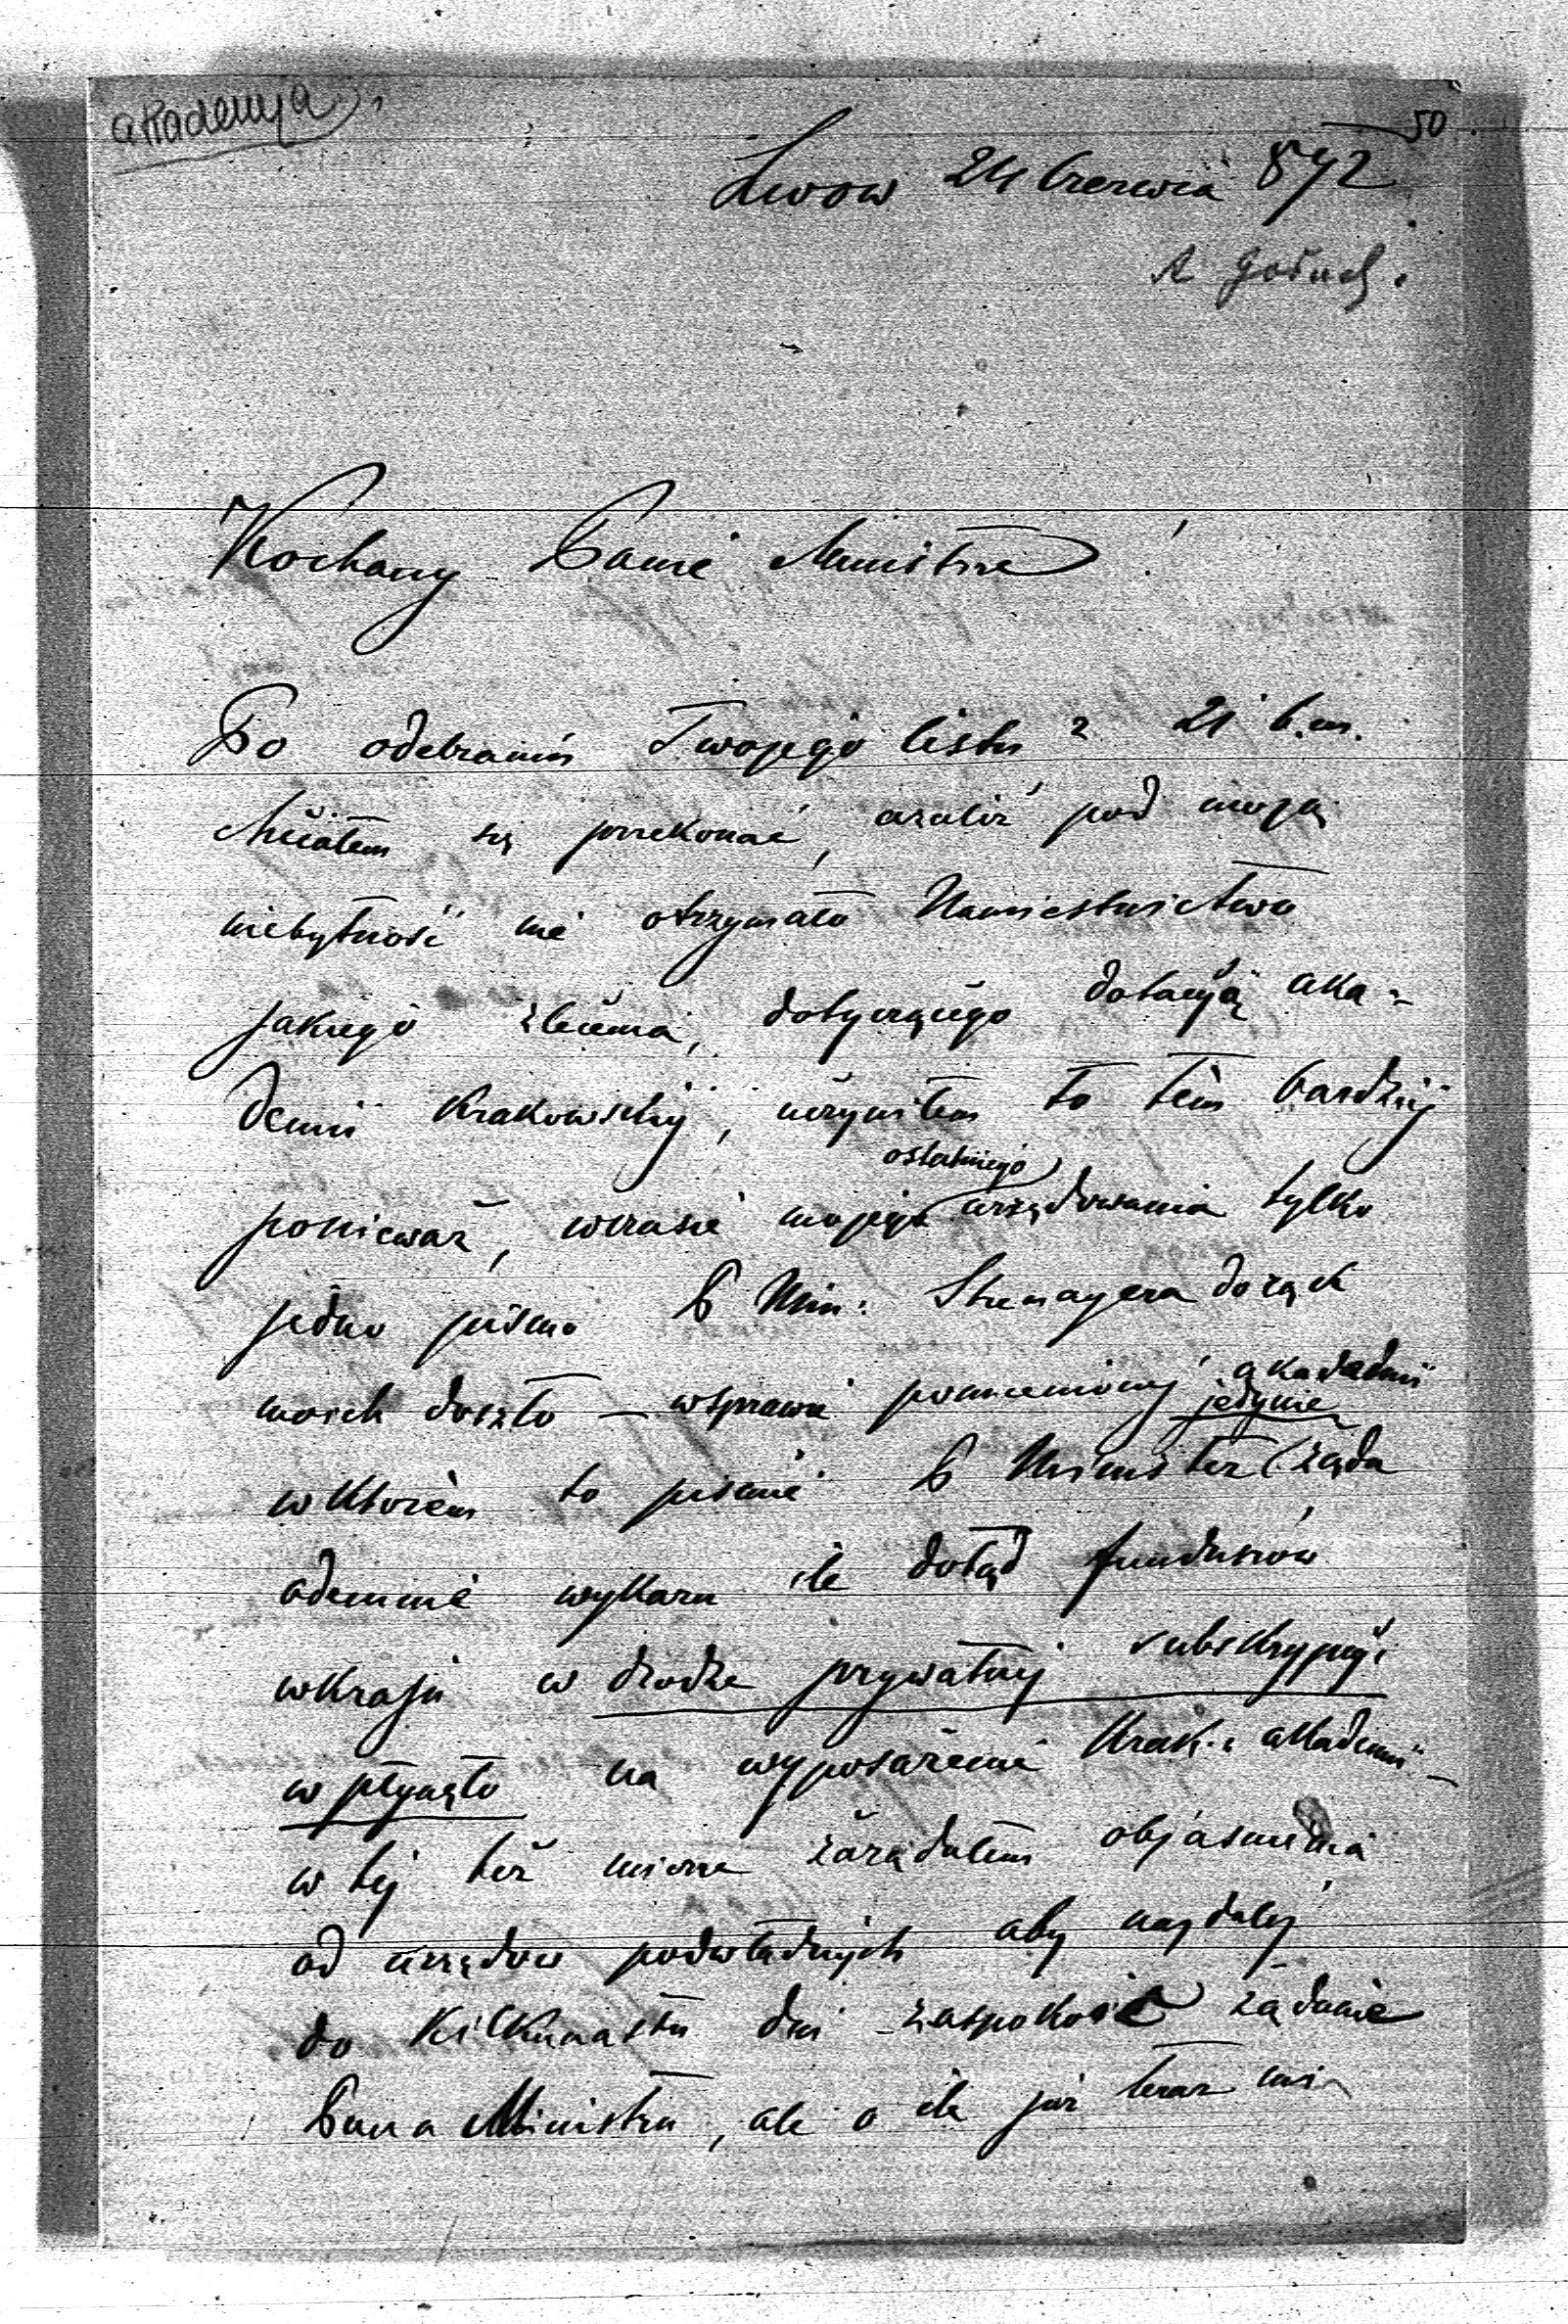 akademya
50
Lwow 24 Czerwca 872
A Gołuch.
Kochany Panie Ministrze!
Po odebraniu Twojego listu z 21 b.m.
chciałem się przekonać, azaliż pod moją
niebytność nie otrzymało Namiestnictwo
jakiego zlecenia, dotyczącego dotacyą aka-
demii Krakowskiej, uczyniłem to tém bardziej
ostatniego
ponieważ, wczasie mojego urzędowania tylko
jedno pismo P Min: Stremayera dorąk
moich doszło — wsprawie pomienionej akademii
jedynie
wktorém to pismie P Minister żąda
odemnie wykazu ile dotąd funduszów
wkraju w drodze prywatnej subskrypcyi
wpłynęło na wyposażenie Krak: akademii —
w tej też mierze zażądałem objasnienia
od urzędow podwładnych aby najdalej
do kilkunastu dni zaspokoić żądanie
Pana Ministra, ale o ile już teraz mi